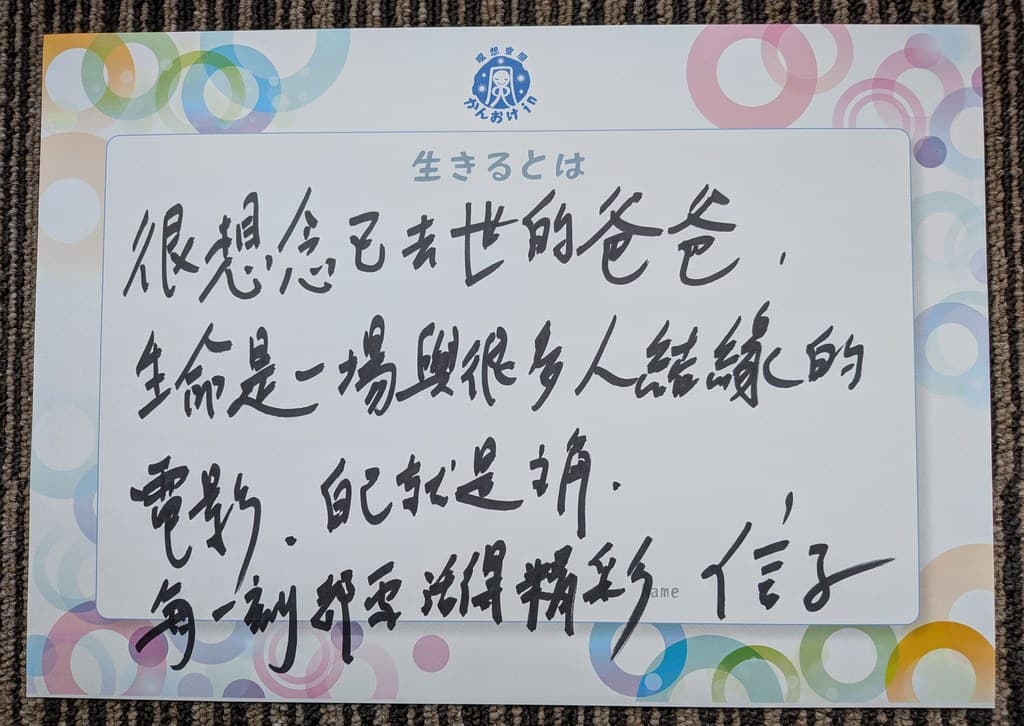 瞑想空間
かんおけin
生きるとは
很想念已去世的爸爸，
生命是一場與很多人結緣的
電影．自己就是主角．
每一刻都要活得精彩
Name 信子